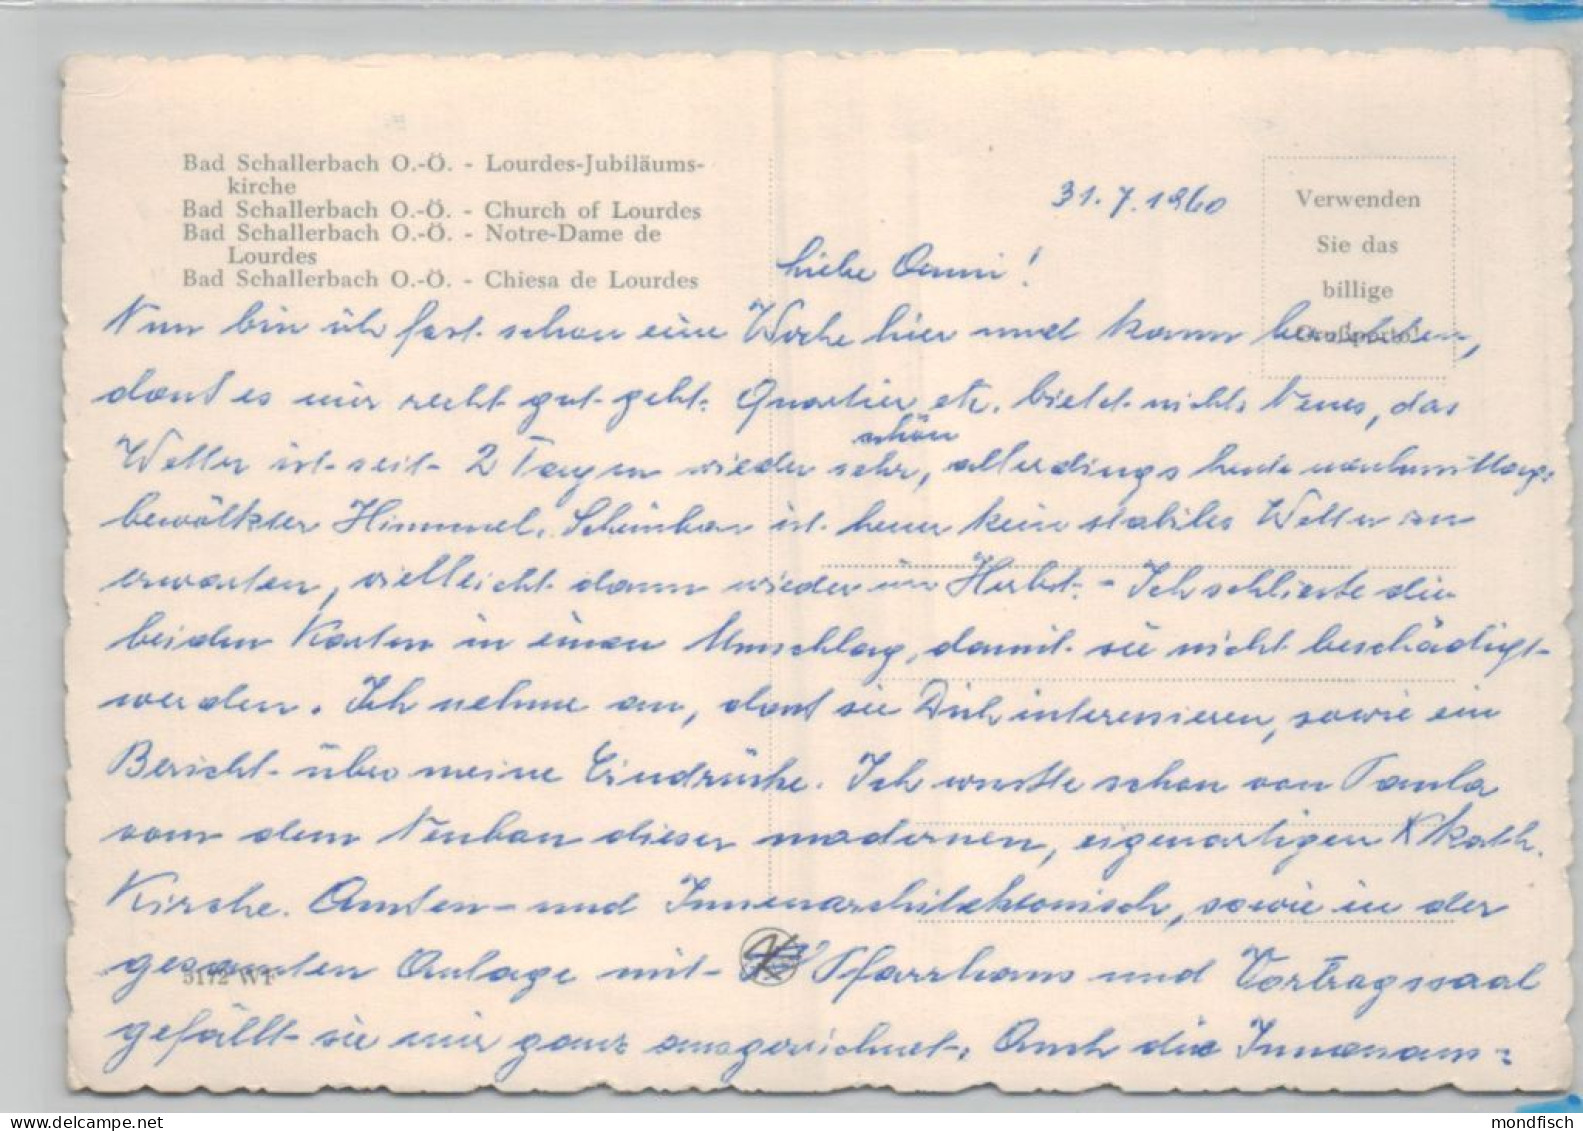 Bad Schallerbach O.-Ö. - Lourdes-Jubiläums-
kirche
Bad Schallerbach O.-Ö. - Church of Lourdes
Bad Schallerbach O.-Ö. - Notre-Dame de
Lourdes
Bad Schallerbach O.-Ö. - Chiesa de Lourdes
Verwenden
Sie das
billige
Großporto!
31.7.1960
Liebe Omi!
Nun bin ich fast schon eine Woche hier und kann berichten,
daß es mir recht gut geht. Quartier etc. bietet nichts Neues, das
schön
Wetter ist seit 2 Tagen wieder sehr, allerdings heute nachmittag:
bewölkter Himmel. Scheinbar ist heuer kein stabiles Wetter zu
erwarten, vielleicht dann wieder im Herbst. - Ich schließe die
beiden Karten in einen Umschlag, damit sie nicht beschädigt
werden. Ich nehme an, daß sie Dich interessieren, sowie ein
Bericht über meine Eindrücke. Ich wußte schon von Paula
vom dem Neubau dieser modernen, eigenartigen kath.
Kirche. Außen- und Innenarchitektonisch, sowie in der
gesamten Anlage mit Pfarrhaus und Vortragssaal
gefällt sie mir ganz ausgezeichnet. Auch die Innenaus=
5172 WT
mondfisch